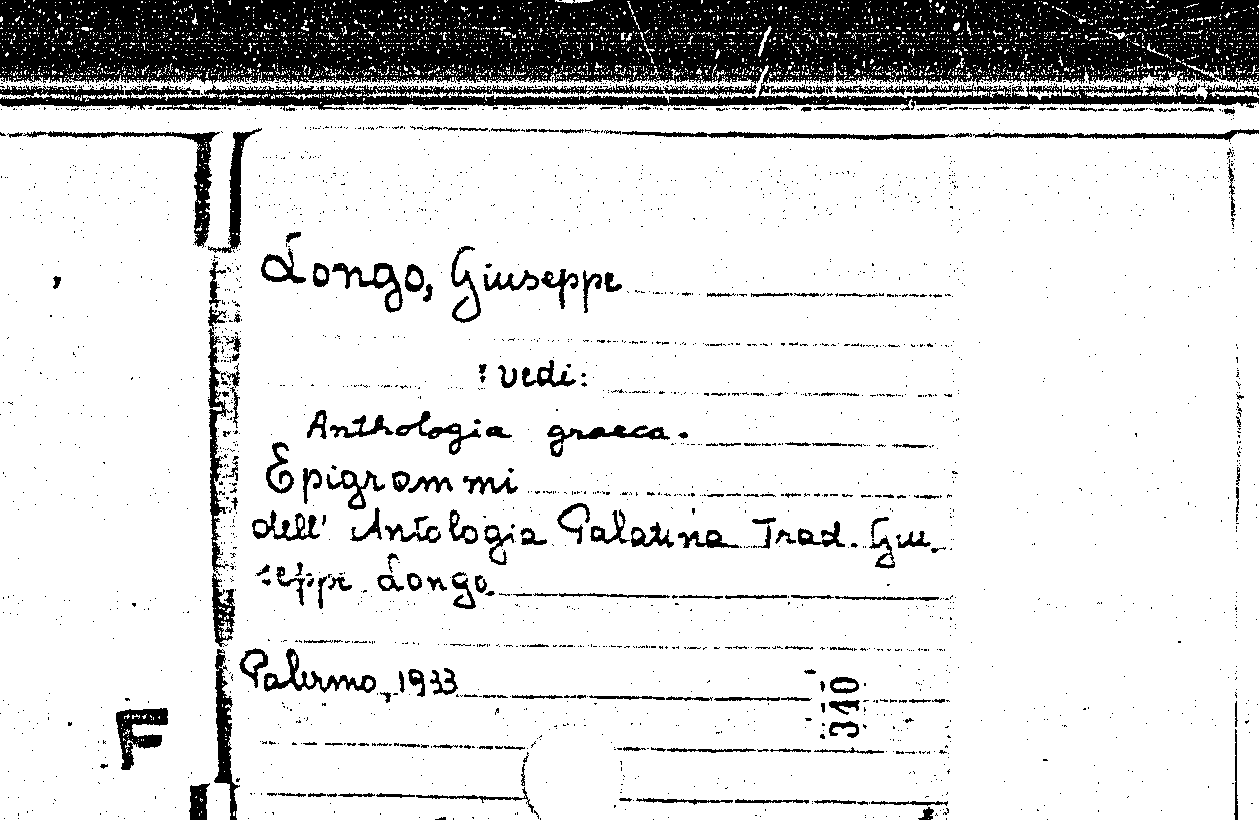 Longo, Giuseppe
: vedi:
Anthologia graeca.
Epigrammi
dell' Antologia Palatina Trad. Giu-
seppe Longo.
Palermo, 1933
340
F